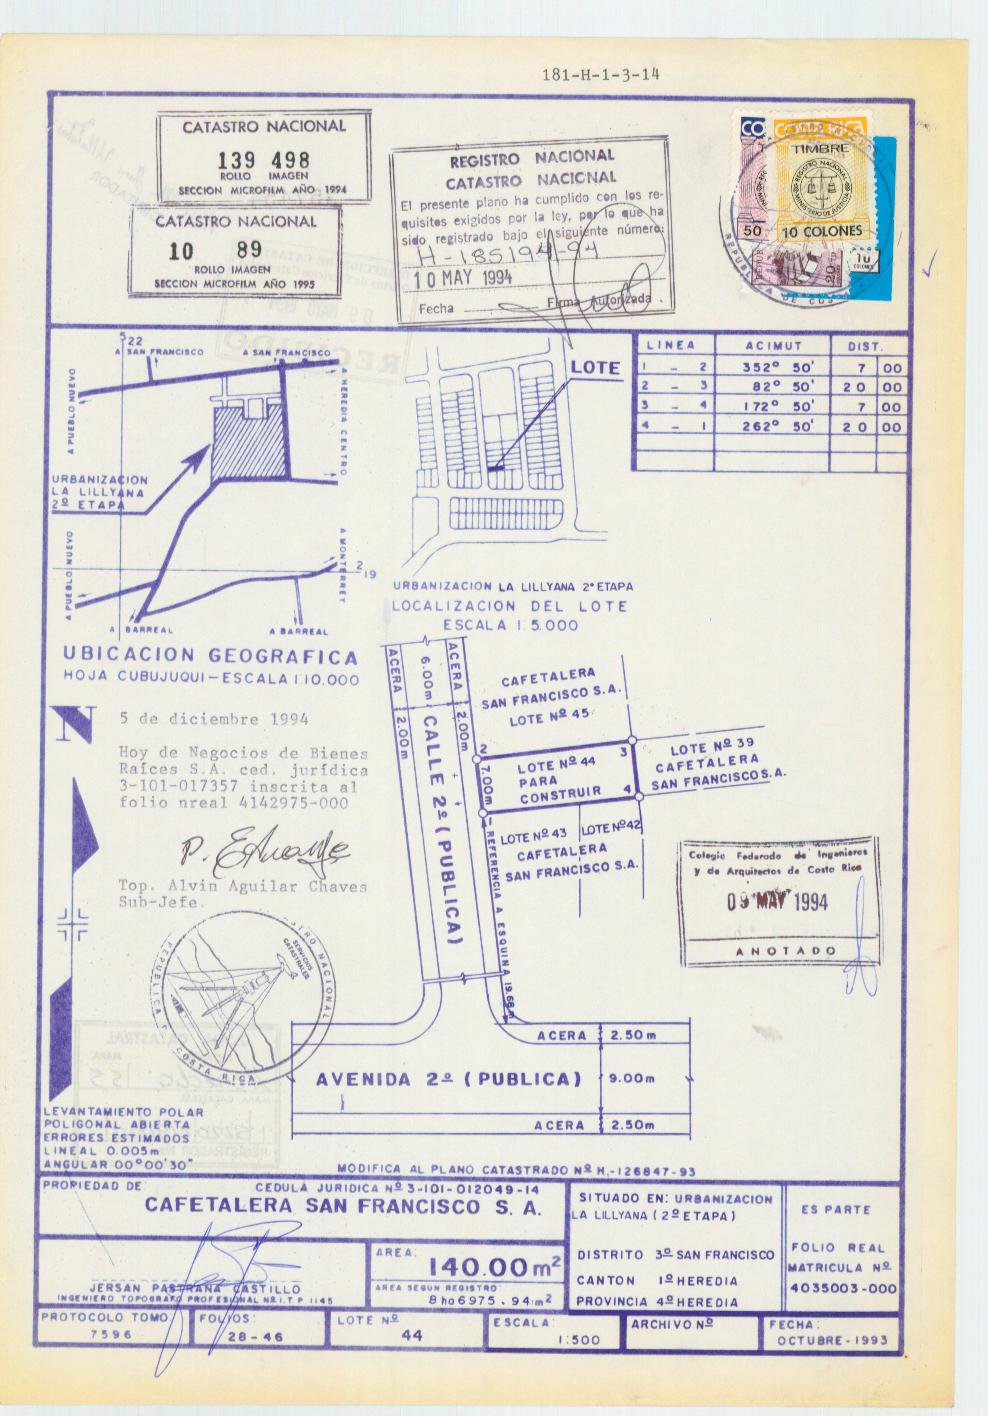 181-H-1-3-14
CATASTRO NACIONAL
139 498
ROLLO IMAGEN
SECCION MICROFILM AÑO 1994
CATASTRO NACIONAL
10 89
ROLLO IMAGEN
SECCION MICROFILM AÑO 1995
REGISTRO NACIONAL
CATASTRO NACIONAL
El presente plano ha cumplido con los re-
quisitos exigidos por la ley, por lo que ha
sido registrado bajo el siguiente número:
H-185194-94
10 MAY 1994
Fecha Firma Autorizada
COSTA RICA
TIMBRE
REGISTRO NACIONAL
MINISTERIO DE JUSTICIA
50
10 COLONES
20
10
COLONES
522
A SAN FRANCISCO
A SAN FRANCISCO
A PUEBLO NUEVO
A HEREDIA CENTRO
URBANIZACION
LA LILLYANA
2º ETAPA
A PUEBLO NUEVO
A MONTERREY
219
A BARREAL
A BARREAL
UBICACION GEOGRAFICA
HOJA CUBUJUQUI-ESCALA 1:10.000
LOTE
URBANIZACION LA LILLYANA 2º ETAPA
LOCALIZACION DEL LOTE
ESCALA 1:5.000
LINEA ACIMUT DIST.
1 - 2 352º 50' 7 00
2 - 3 82º 50' 20 00
3 - 4 172º 50' 7 00
4 - 1 262º 50' 20 00
N
5 de diciembre 1994
Hoy de Negocios de Bienes
Raíces S.A. ced. jurídica
3-101-017357 inscrita al
folio nreal 4142975-000
Top. Alvin Aguilar Chaves
Sub-Jefe.
SERVICIOS
CATASTRALES
REPUBLICA
COSTA RICA
ACERA
6.00m
ACERA
2.00m
2.00m
CALLE 2º (PUBLICA)
CAFETALERA
SAN FRANCISCO S.A.
LOTE Nº 45
2
3
7.00m
LOTE Nº 44
PARA
CONSTRUIR
4
1
LOTE Nº 39
CAFETALERA
SAN FRANCISCO S.A.
LOTE Nº 43
LOTE Nº 42
CAFETALERA
SAN FRANCISCO S.A.
REFERENCIA A ESQUINA 19.68m
Colegio Federado de Ingenieros
y de Arquitectos de Costa Rica
09 MAY 1994
ANOTADO
ACERA 2.50m
AVENIDA 2º (PUBLICA) 9.00m
ACERA 2.50m
LEVANTAMIENTO POLAR
POLIGONAL ABIERTA
ERRORES ESTIMADOS
LINEAL 0.005m
ANGULAR 00º00'30"
MODIFICA AL PLANO CATASTRADO Nº H.-126847-93
PROPIEDAD DE:
CEDULA JURIDICA Nº 3-101-012049-14
CAFETALERA SAN FRANCISCO S. A.
SITUADO EN: URBANIZACION
LA LILLYANA (2º ETAPA)
DISTRITO 3º SAN FRANCISCO
CANTON 1º HEREDIA
PROVINCIA 4º HEREDIA
ES PARTE
FOLIO REAL
MATRICULA Nº
4035003-000
JERSAN PASTRANA CASTILLO
INGENIERO TOPOGRAFO PROFESIONAL Nº I.T.P 1145
AREA:
140.00 m²
AREA SEGUN REGISTRO
8 ha 6975.94 m²
PROTOCOLO TOMO:
7596
FOLIOS:
28-46
LOTE Nº
44
ESCALA:
1:500
ARCHIVO Nº
FECHA:
OCTUBRE-1993